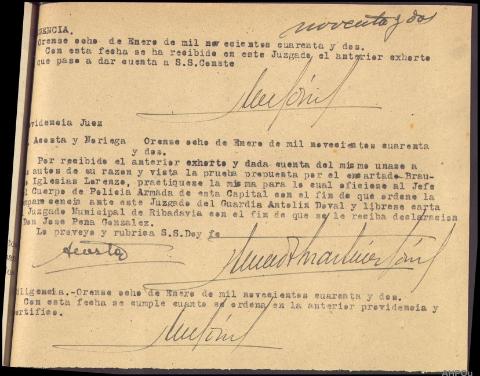 noventa y dos
GENCIA.
Orense ocho de Enero de mil novecientos cuarenta y dos.
Con esta fecha se ha recibido en este Juzgado el anterior exhorto
que paso a dar cuenta a S.S. Conste
videncia Juez
Acosta y Noriega Orense ocho de Enero de mil novecientos cuarenta
y dos.
Por recibido el anterior exhorto y dada cuenta del mismo unase a
s autos de su razon y vista la prueba propuesta por el encartado Brau-
Iglesias Lorenzo, practiquese la misma para lo cual oficiese al Jefe
Cuerpo de Policia Armada de esta Capital con el fin de que ordene la
mparecencia ante este Juzgado del Guardia Antolin Doval y librese carta
Juzgado Municipal de Ribadavia con el fin de que se le reciba declaracion
Don Jose Pena Gonzalez.
Lo proveyo y rubrica S.S. Doy fe
Acosta
iligencia.-Orense ocho de Enero de mil novecientos cuarenta y dos.
Con esta fecha se cumple cuanto se ordena en la anterior providencia y
ertifico.
AHPOu